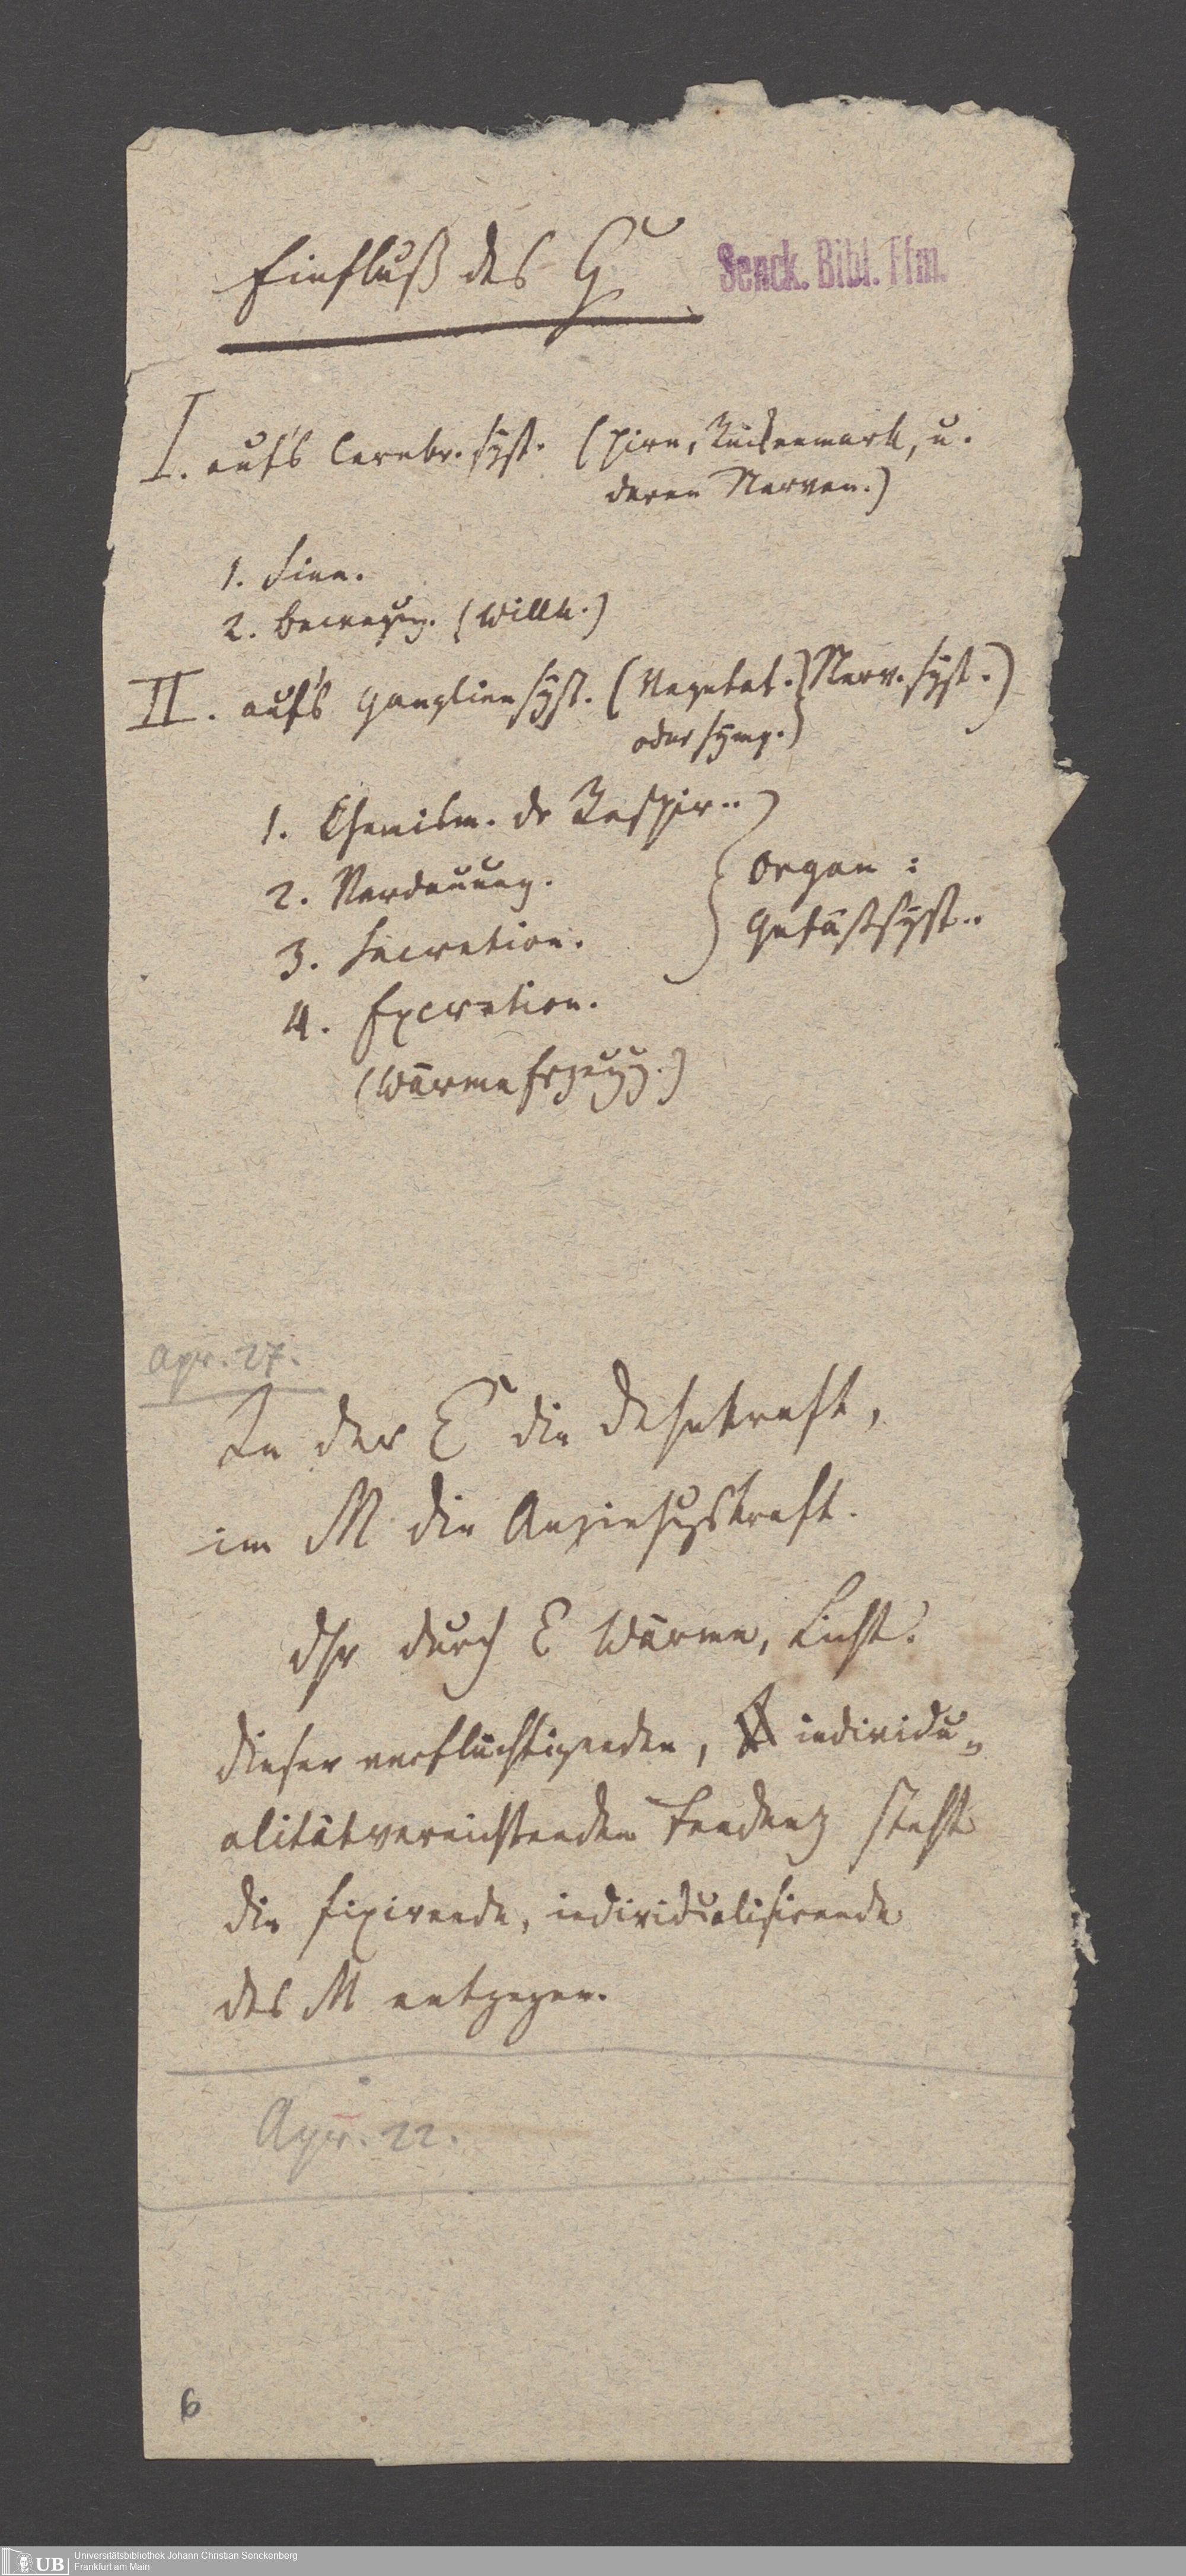 Einfluß des G
Senck. Bibl. Ffm.
I. auf's Cerebr. syst. (Hirn, Rückenmark, u.
deren Nerven.)
1. Sinn.
2. Bewegg. (Willk.)
II. auf's Gangliensyst. (Vegetat. Nerv. syst.)
oder symp.)
1. Chemism. dr Respir..
2. Verdauung.
3. Secretion.
4. Excretion.
(Wärme Erzeugg.)
Organ :
Gefäßsyst..
Apr. 27.
In der E die Dehnkraft,
im M die Anziehgskraft.
dhr durch E Wärme, Licht.
dieser verflüchtigenden, individu-
alitätvernichtenden Tendenz steht
die fixirende, individualisirende
des M entgegen.
Apr. 22.
6
UB
Universitätsbibliothek Johann Christian Senckenberg
Frankfurt am Main